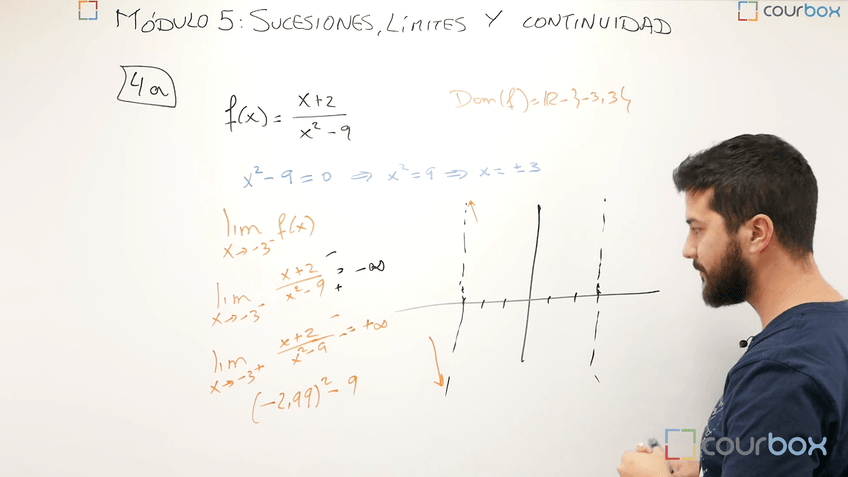 MÓDULO 5: SUCESIONES, LÍMITES Y CONTINUIDAD
courbox
4a
f(x) = x+2 / x² - 9
Dom(f) = R - {-3, 3}
x² - 9 = 0 ⇒ x² = 9 ⇒ x = ±3
lim f(x)
x → -3⁻
lim x+2 / x² - 9 - / + = -∞
x → -3⁻
lim x+2 / x² - 9 - / - = +∞
x → -3⁺
(-2,99)² - 9
courbox